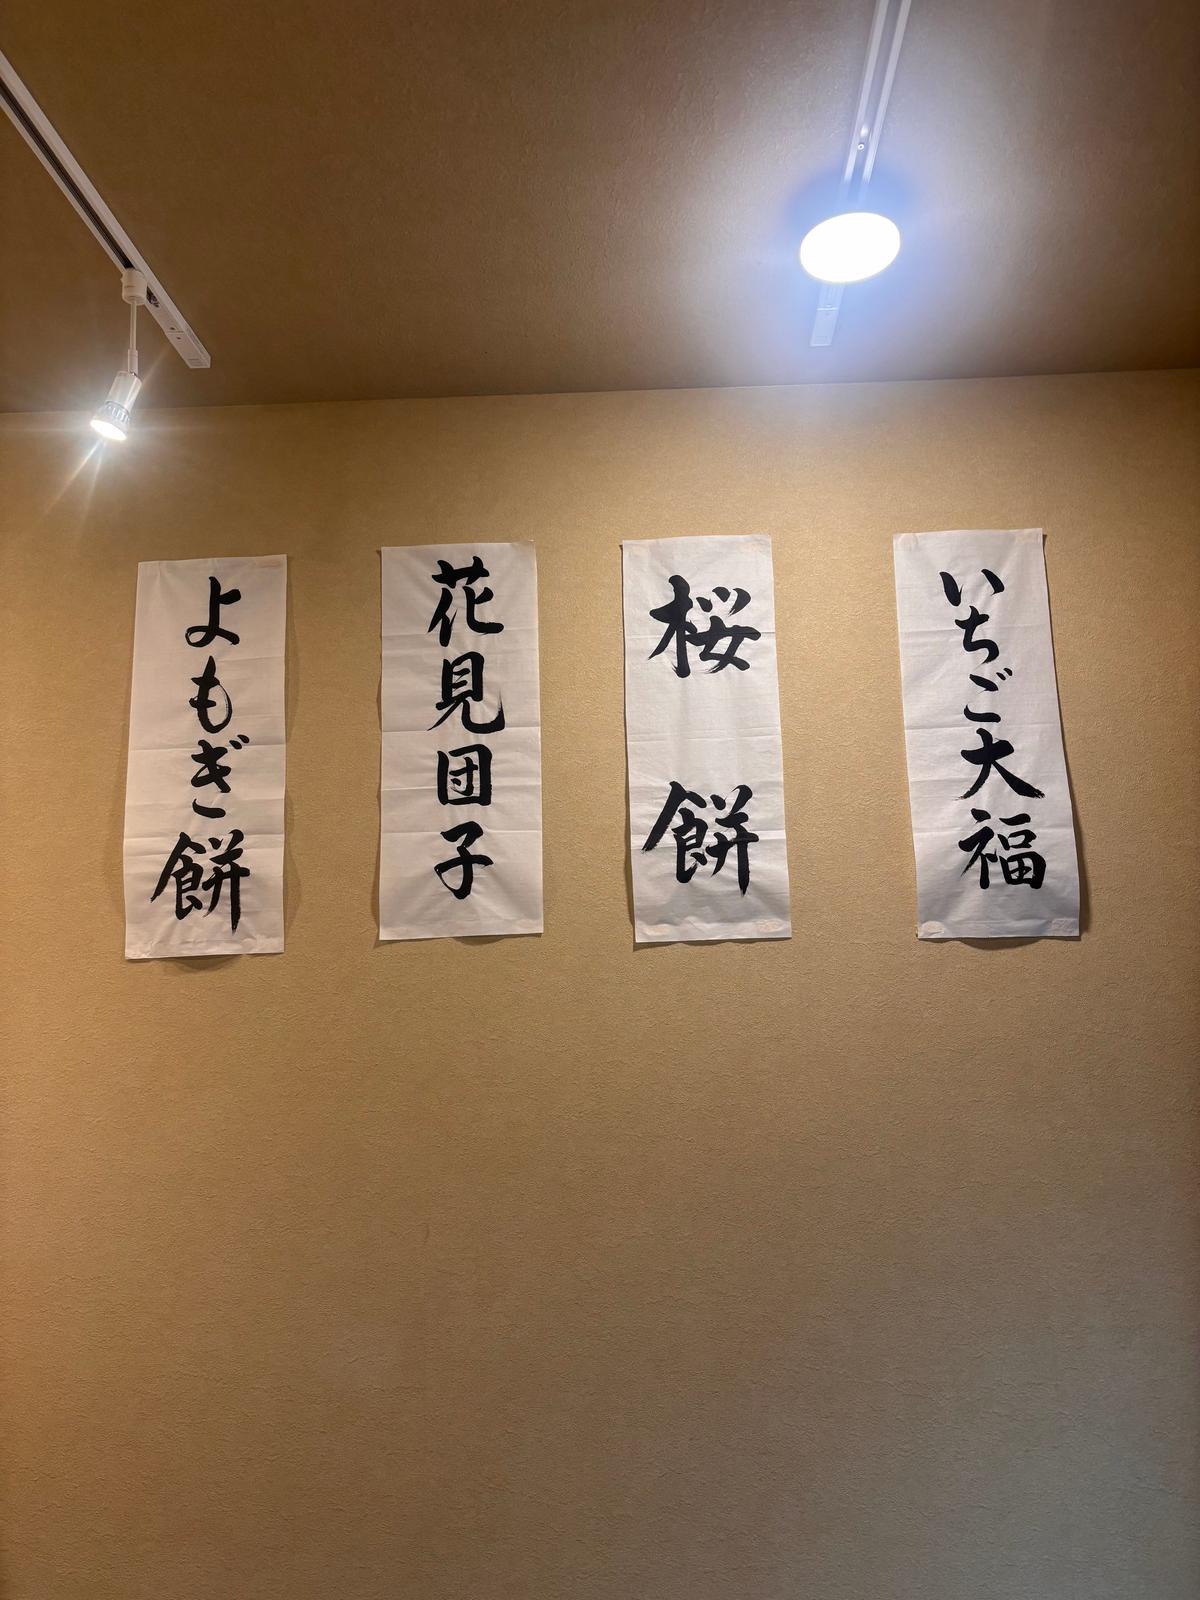 いちご大福
桜餅
花見団子
よもぎ餅